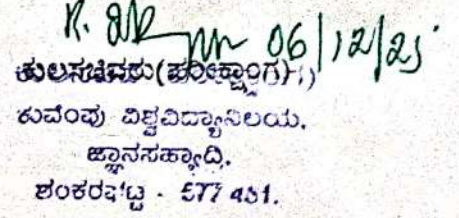 06/12/25
ಕುಲಸಚಿವರು(ಪರೀಕ್ಷಾಂಗ)
ಕುವೆಂಪು ವಿಶ್ವವಿದ್ಯಾನಿಲಯ,
ಜ್ಞಾನಸಹ್ಯಾದ್ರಿ,
ಶಂಕರಘಟ್ಟ - 577 451.